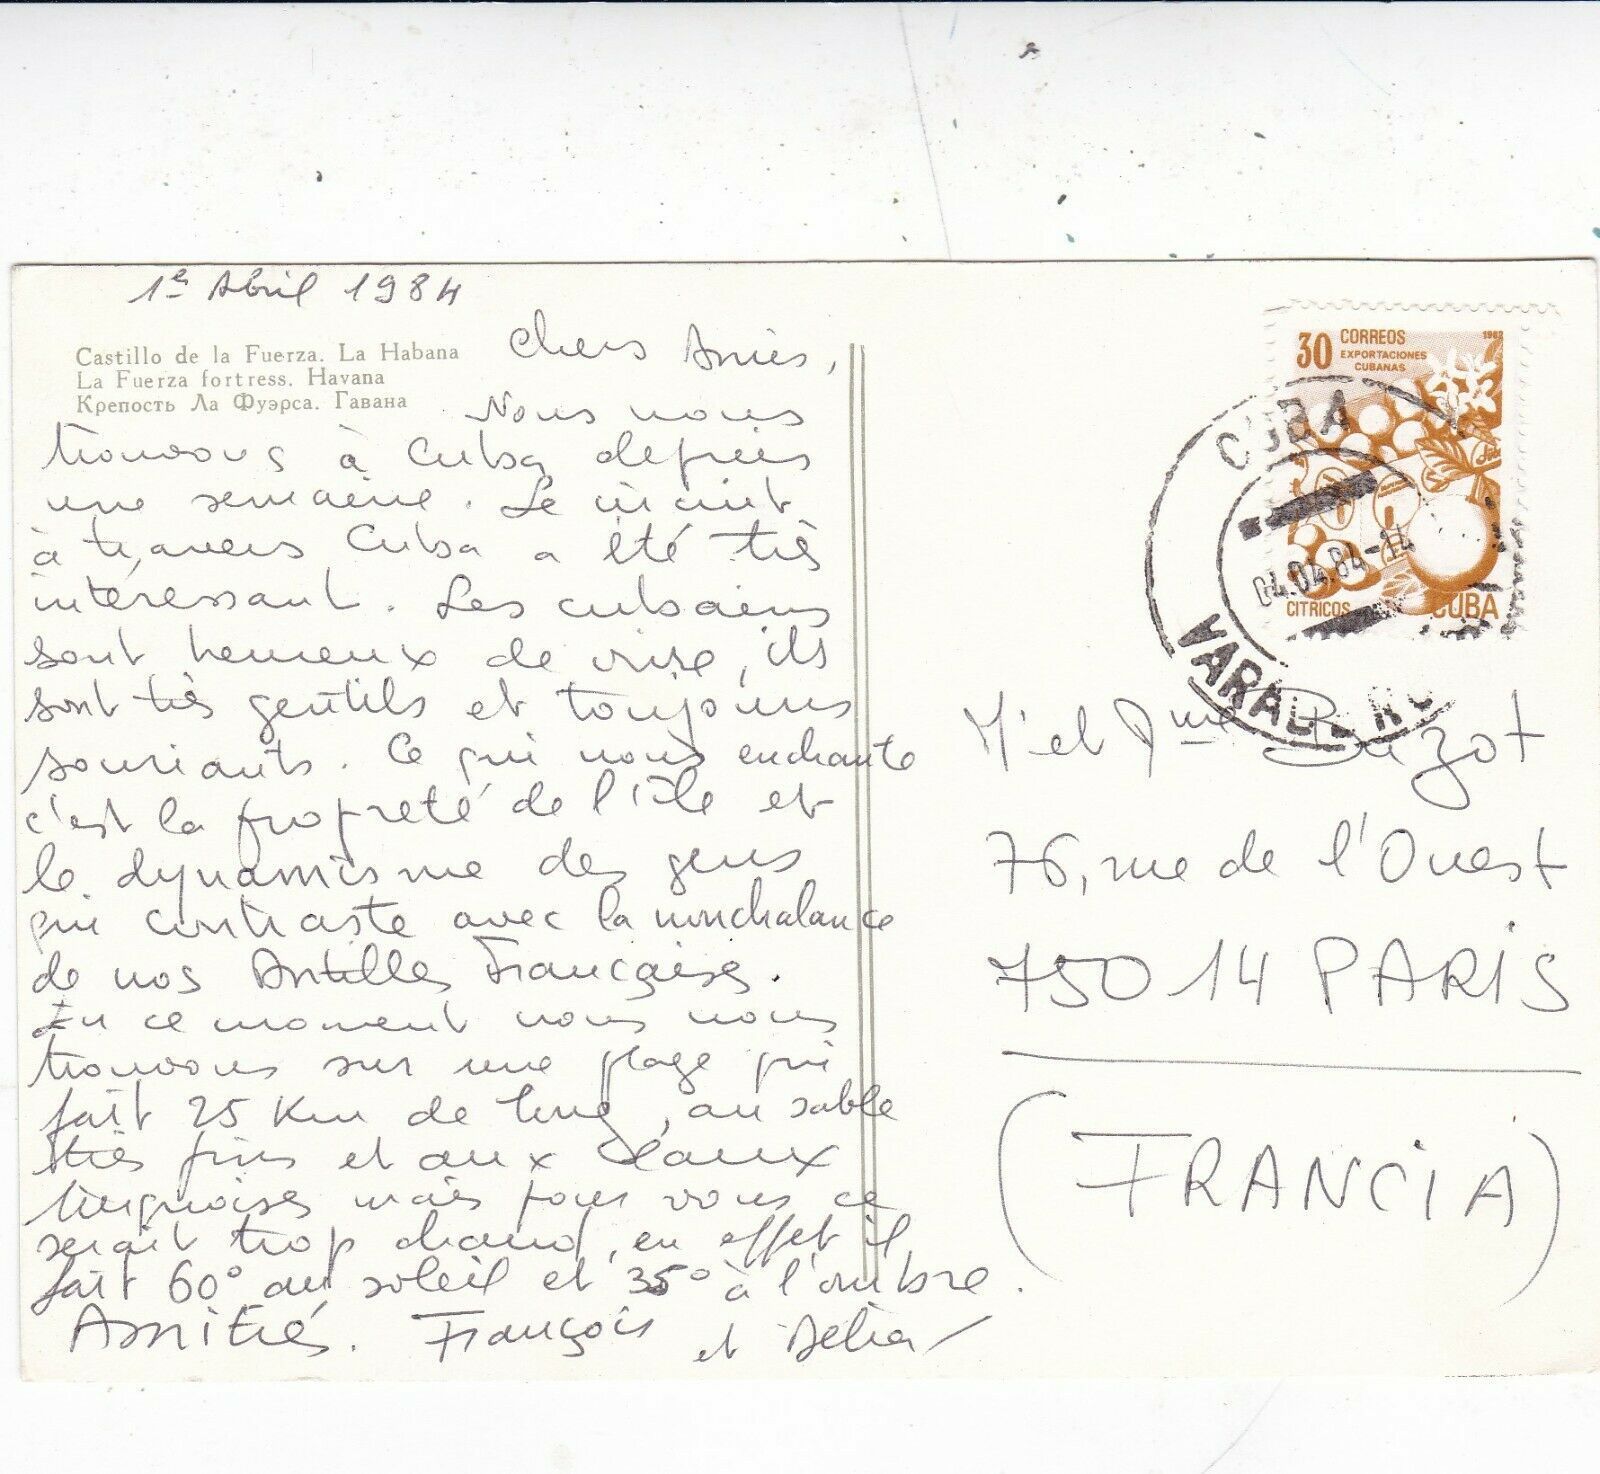 1e Abril 1984
Castillo de la Fuerza. La Habana
La Fuerza fortress. Havana
Крепость Ла Фуэрса. Гавана
Chers Amis,
Nous nous
trouvons à Cuba depuis
une semaine. Le circuit
à travers Cuba a été très
intéressant. Les cubains
sont heureux de vivre, ils
sont très gentils et toujours
souriants. Ce qui nous enchante
c'est la propreté de l'île et
le dynamisme des gens
qui contraste avec la nonchalance
de nos Antilles Françaises.
En ce moment nous nous
trouvons sur une plage qui
fait 25 Km de long, au sable
très fins et aux eaux
turquoises mais pour vous ce
serait trop chaud, en effet il
fait 60° au soleil et 35° à l'ombre.
Amitiés. François et
30 CORREOS 1982
EXPORTACIONES
CUBANAS
CITRICOS CUBA
CUBA
04.04.84-14
VARADERO
Mr et Mme Buzot
76, rue de l'Ouest
75014 PARIS
(FRANCIA)